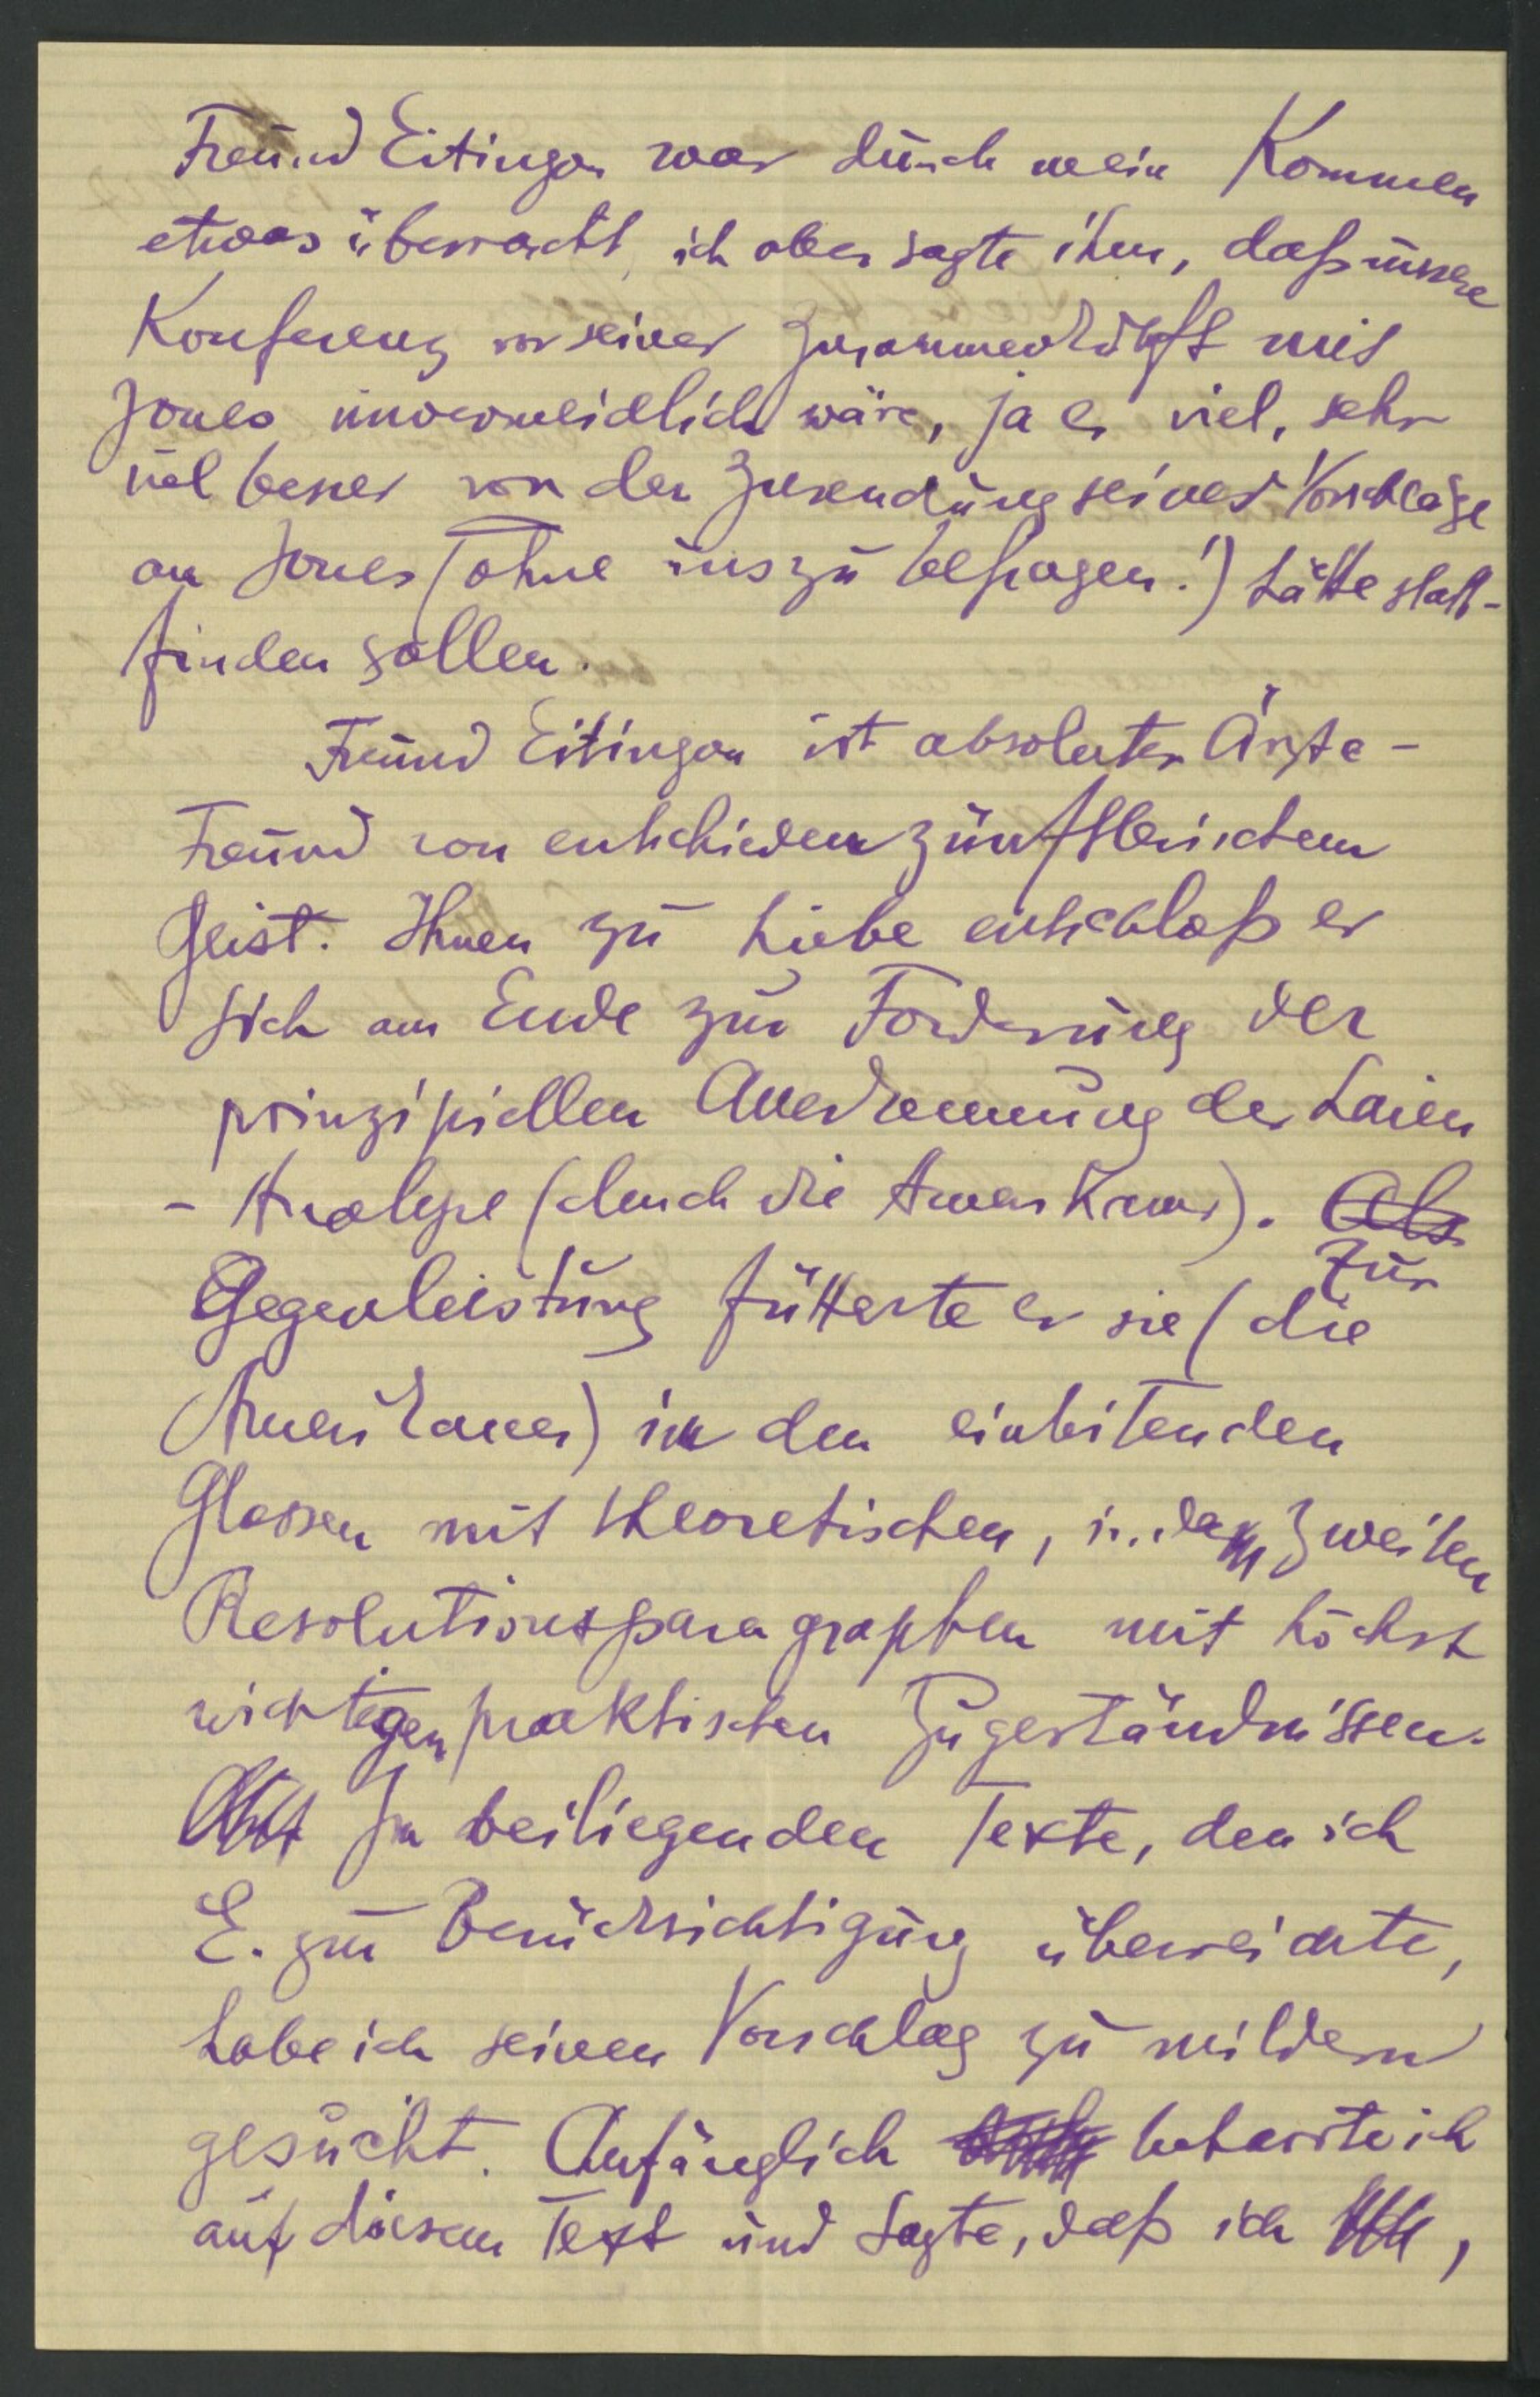 Freund Eitingon war durch mein Kommen
etwas überrascht, ich aber sagte ihm, daß unsere
Konferenz vor seiner Zusammenkunft mit
Jones unvermeidlich wäre, ja es viel, sehr
viel besser vor der Zusendung seines Vorschlags
an Jones (ohne uns zu befragen!) hätte statt-
finden sollen.
Freund Eitingon ist absoluter Ärzte-
Freund von entschieden zünftlerischem
Geist. Ihnen zu Liebe entschloß er
sich am Ende zur Forderung der
prinzipiellen Anerkennung der Laien
- Analyse (durch die Amerikaner). Als
Zur
Gegenleistung fütterte er sie (die
Amerikaner) in den einleitenden
Glossen mit theoretischen, in dem zweiten
Resolutionsparagraphen mit höchst
wichtigen praktischen Zugeständnissen.
In beiliegenden Texte, den ich
E. zur Berücksichtigung überreichte,
habe ich seinen Vorschlag zu mildern
gesucht. Anfänglich beharrte ich
auf diesem Text und sagte, daß ich ,